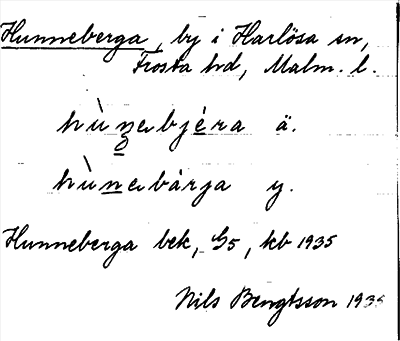 Hunneberga, by i Harlösa sn,
Frosta hd, Malm. l.
hùnebjéra ä.
hùnebárga y.
Hunneberga bek, G5, kb 1935
Nils Bengtsson 1935